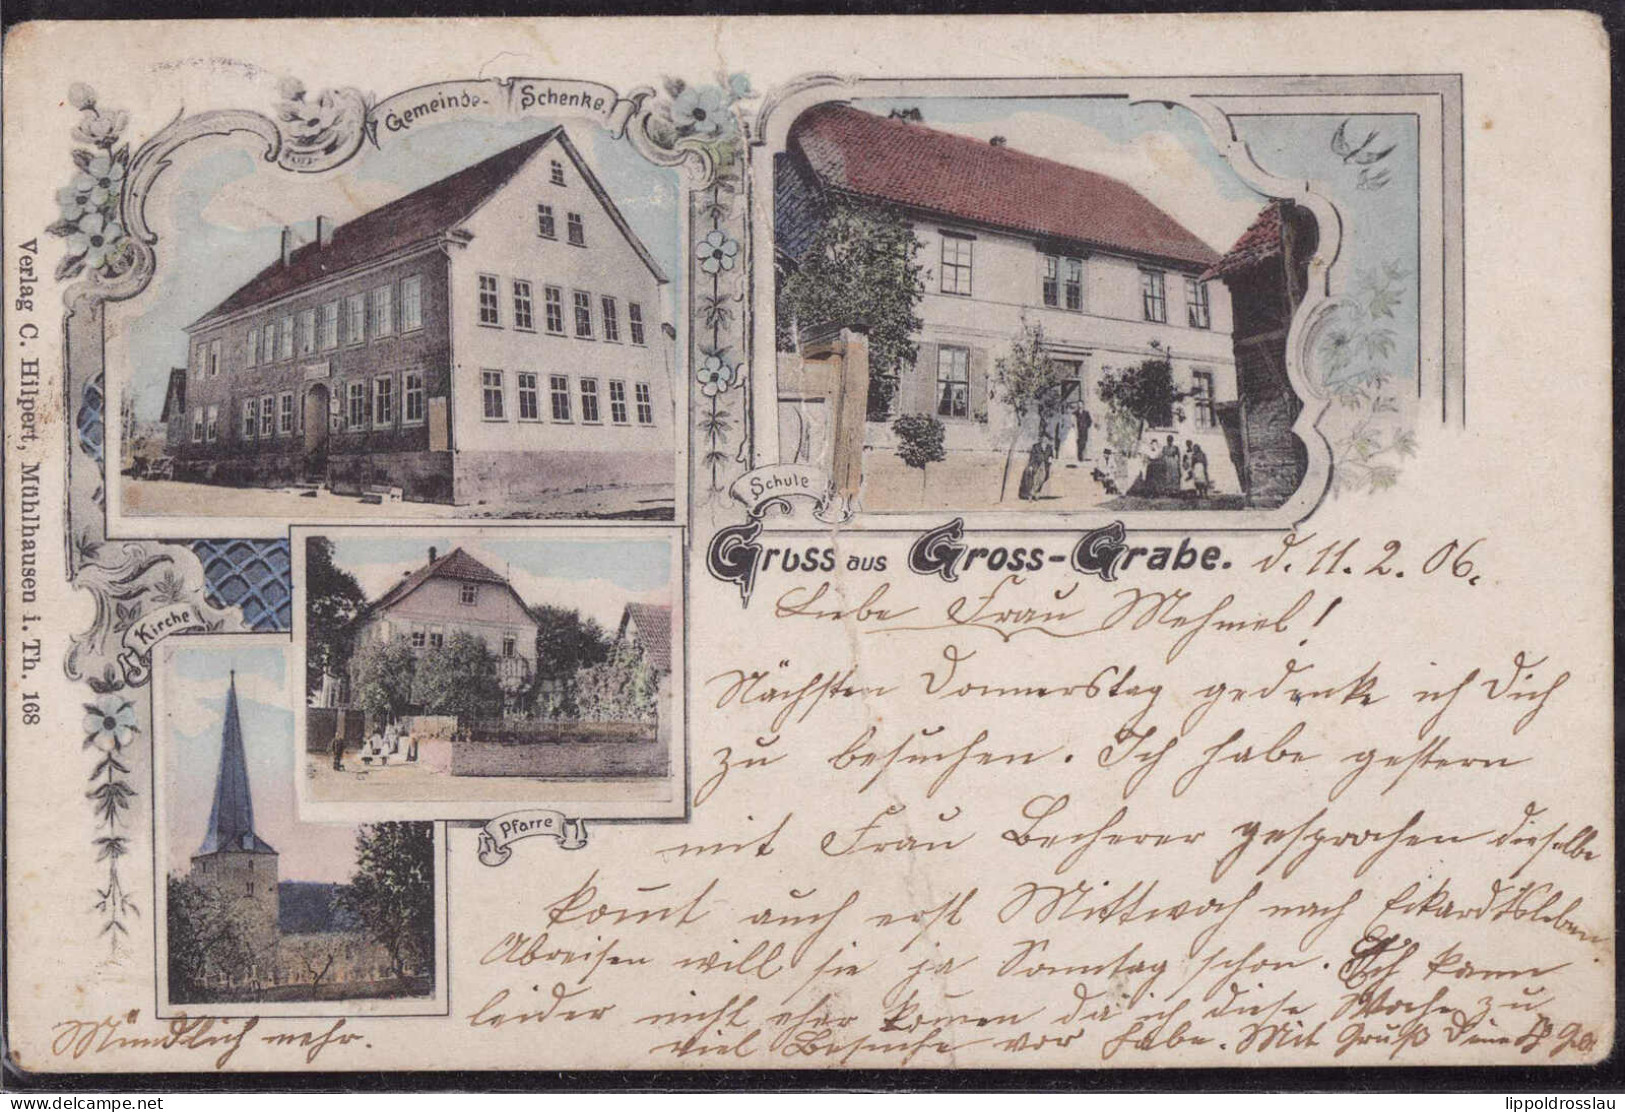 Gemeinde- Schenke.
Schule
Gruss aus Gross-Grabe.
d. 11. 2. 06.
Kirche
Pfarre
Verlag C. Hilpert, Mühlhausen i. Th. 168
Liebe Frau Mehmel!
Nächsten Donnerstag gedenke ich Dich
zu besuchen. Ich habe gestern
mit Frau Becherer gesprochen dieselbe
kommt auch erst Mittwoch nach Eckardtsleben.
Abreisen will sie ja Sonntag schon. Ich kann
leider nicht eher kommen da ich diese Woche zu
viel Besuche vor habe. Mit Gruß Deine
Mündlich mehr.
delcampe.net
lippoldrosslau